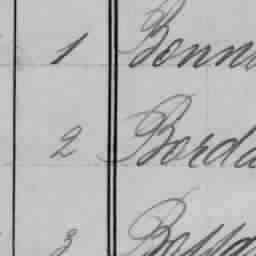 1 Bonn
2 Borda
3